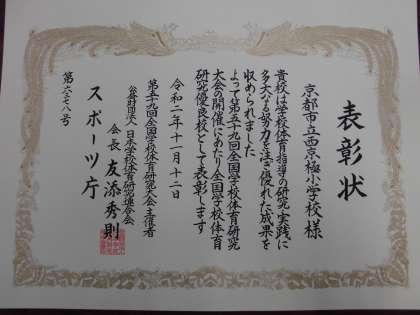 表彰状
京都市立西京極小学校 様
貴校は学校体育指導の研究・実践に
多大なる努力を注ぎ優れた成果を
収められました
よって第五十九回全国学校体育研究
大会の開催にあたり全国学校体育
研究優良校として表彰します
令和二年十一月十二日
第五十九回全国学校体育研究大会主催者
公益財団法人 日本学校体育研究連合会
会長 友添秀則
スポーツ庁
第六二八号